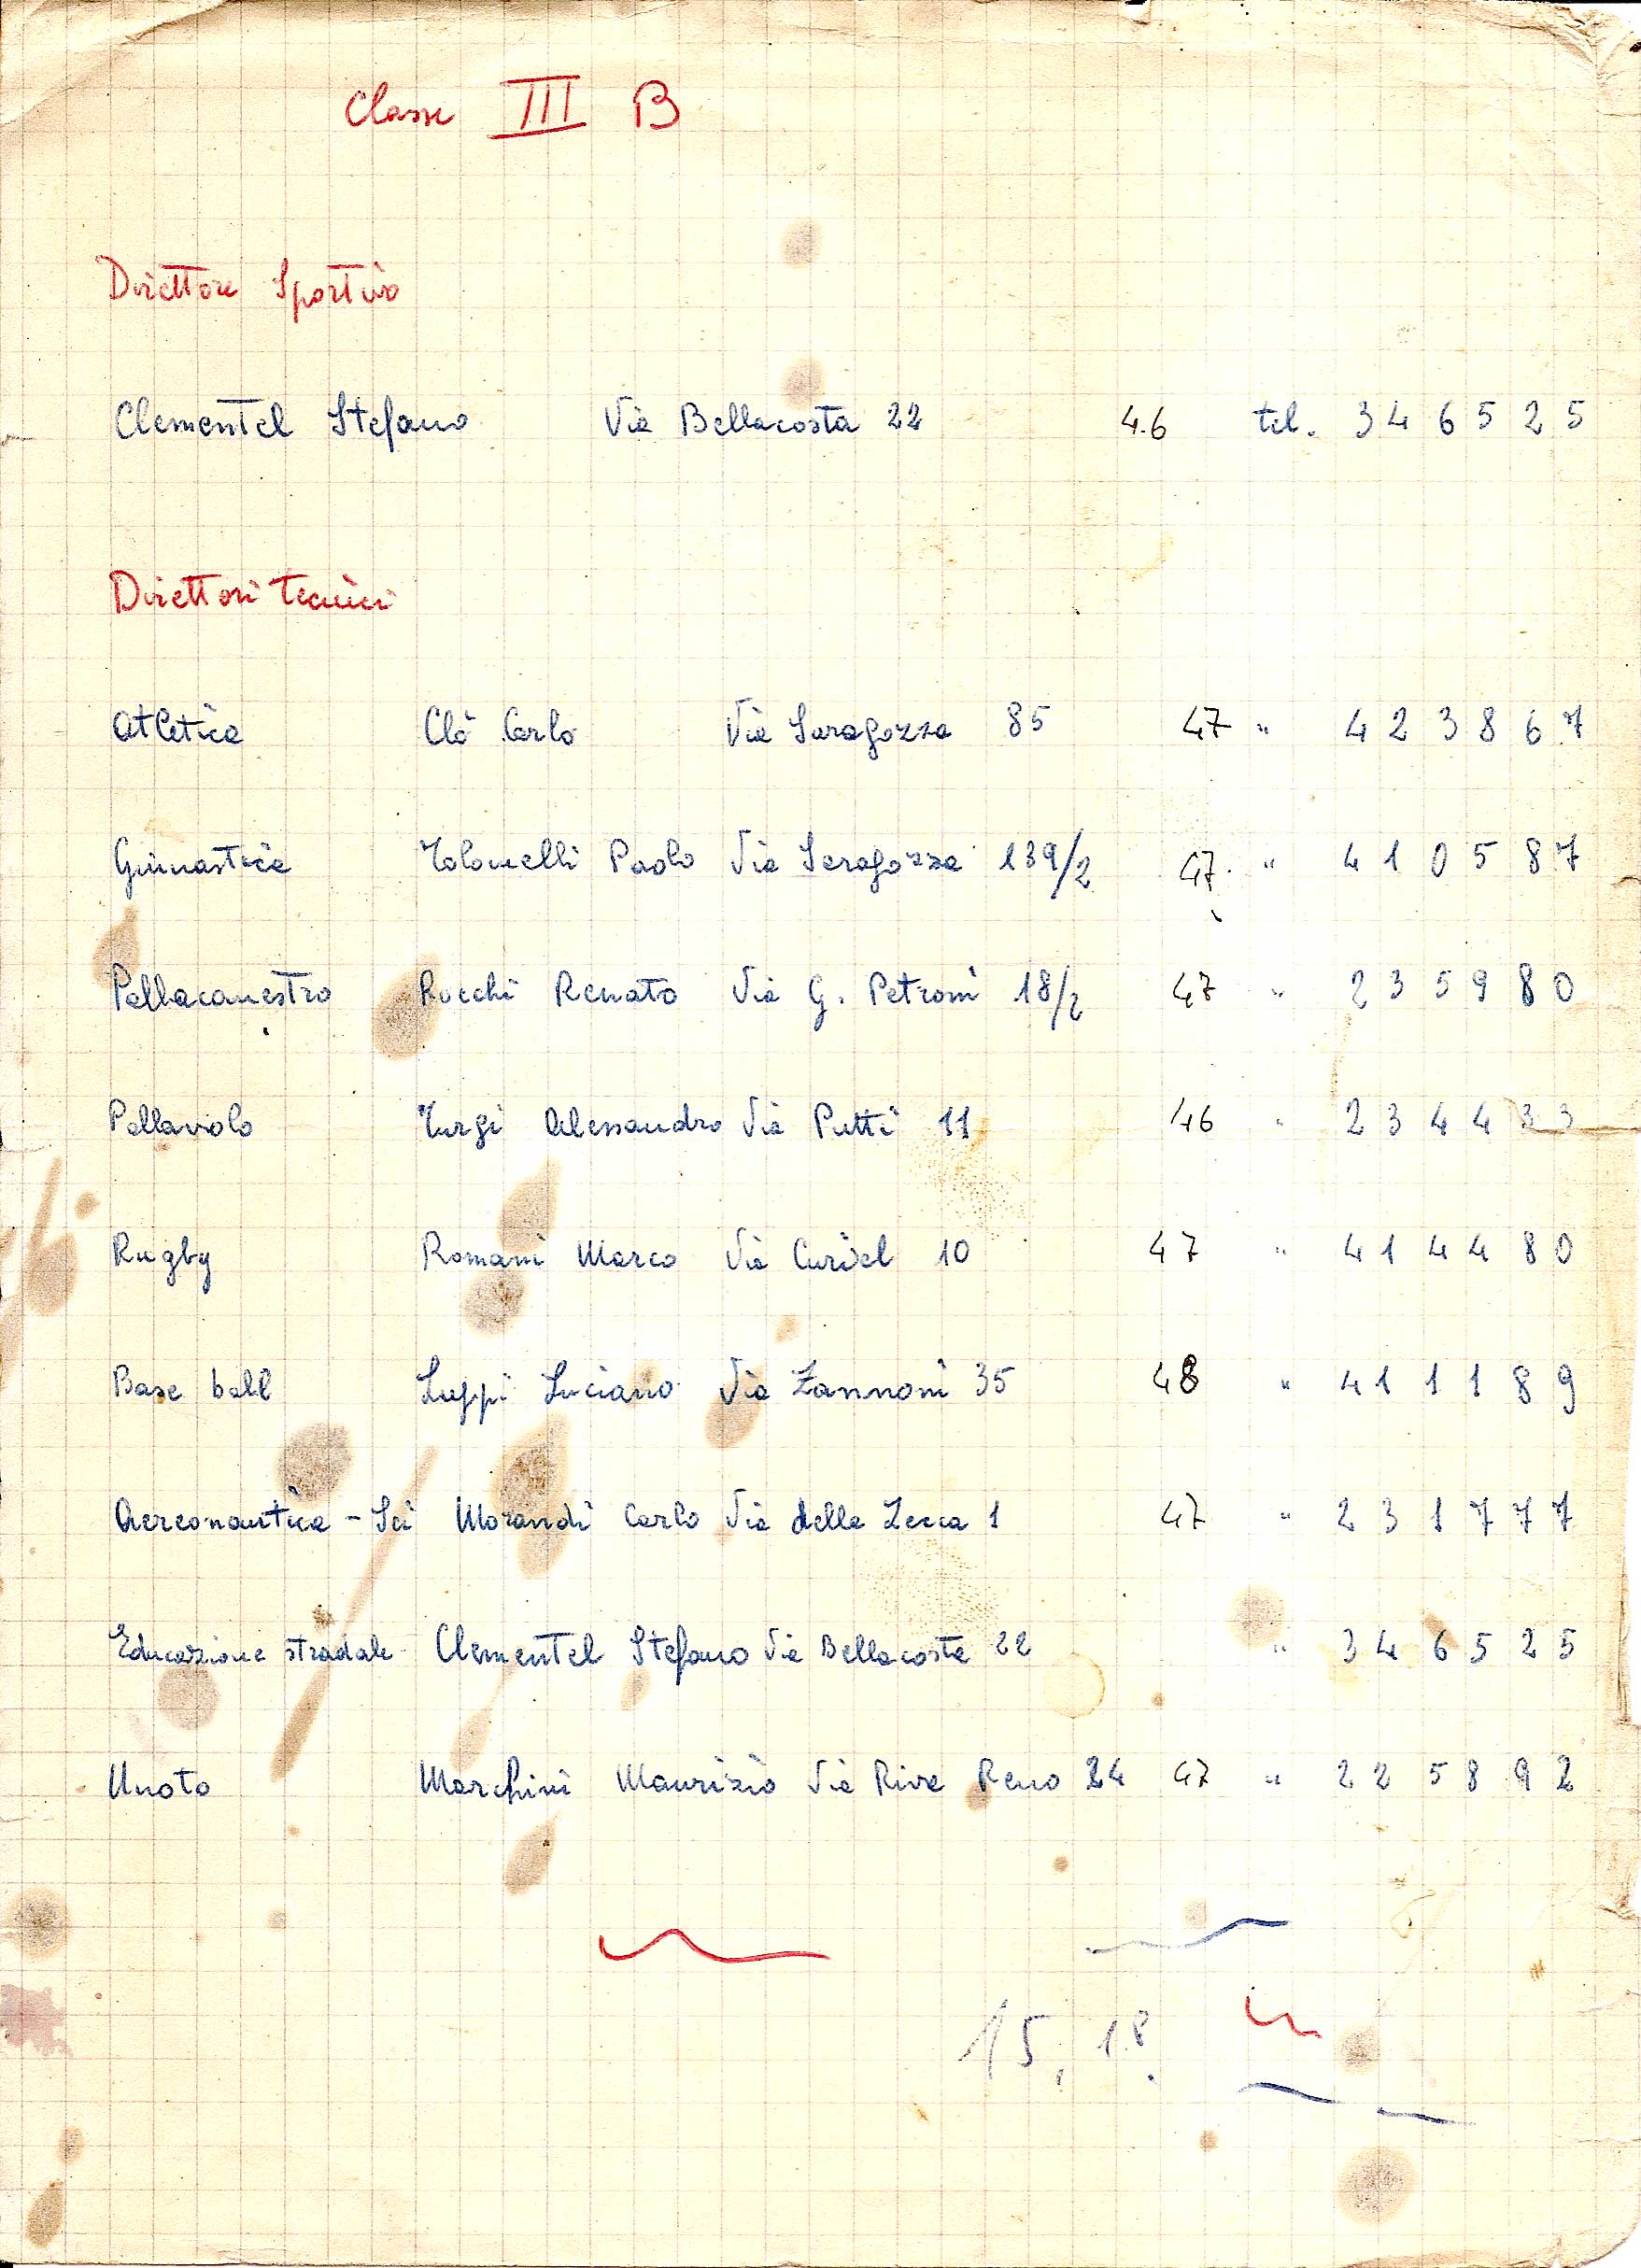 Classe III B
Direttore Sportivo
Clementel Stefano Via Bellacosta 22 46 tel. 346525
Direttori tecnici
Atletica Clò Carlo Via Saragozza 85 47 " 423867
Ginnastica Tolomelli Paolo Via Saragozza 139/2 47 " 410587
Pallacanestro Rocchi Renato Via G. Petroni 18/2 47 " 235980
Pallavolo Turgi Alessandro Via Putti 11 46 " 234433
Rugby Romani Marco Via Curiel 10 47 " 414480
Base ball Luppi Luciano Via Zannoni 35 48 " 411189
Aereonautica - Sci Morandi Carlo Via della Zecca 1 47 " 231777
Educazione stradale Clementel Stefano Via Bellacosta 22 " 346525
Nuoto Marchini Maurizio Via Riva Reno 24 47 " 225892
15, 18.